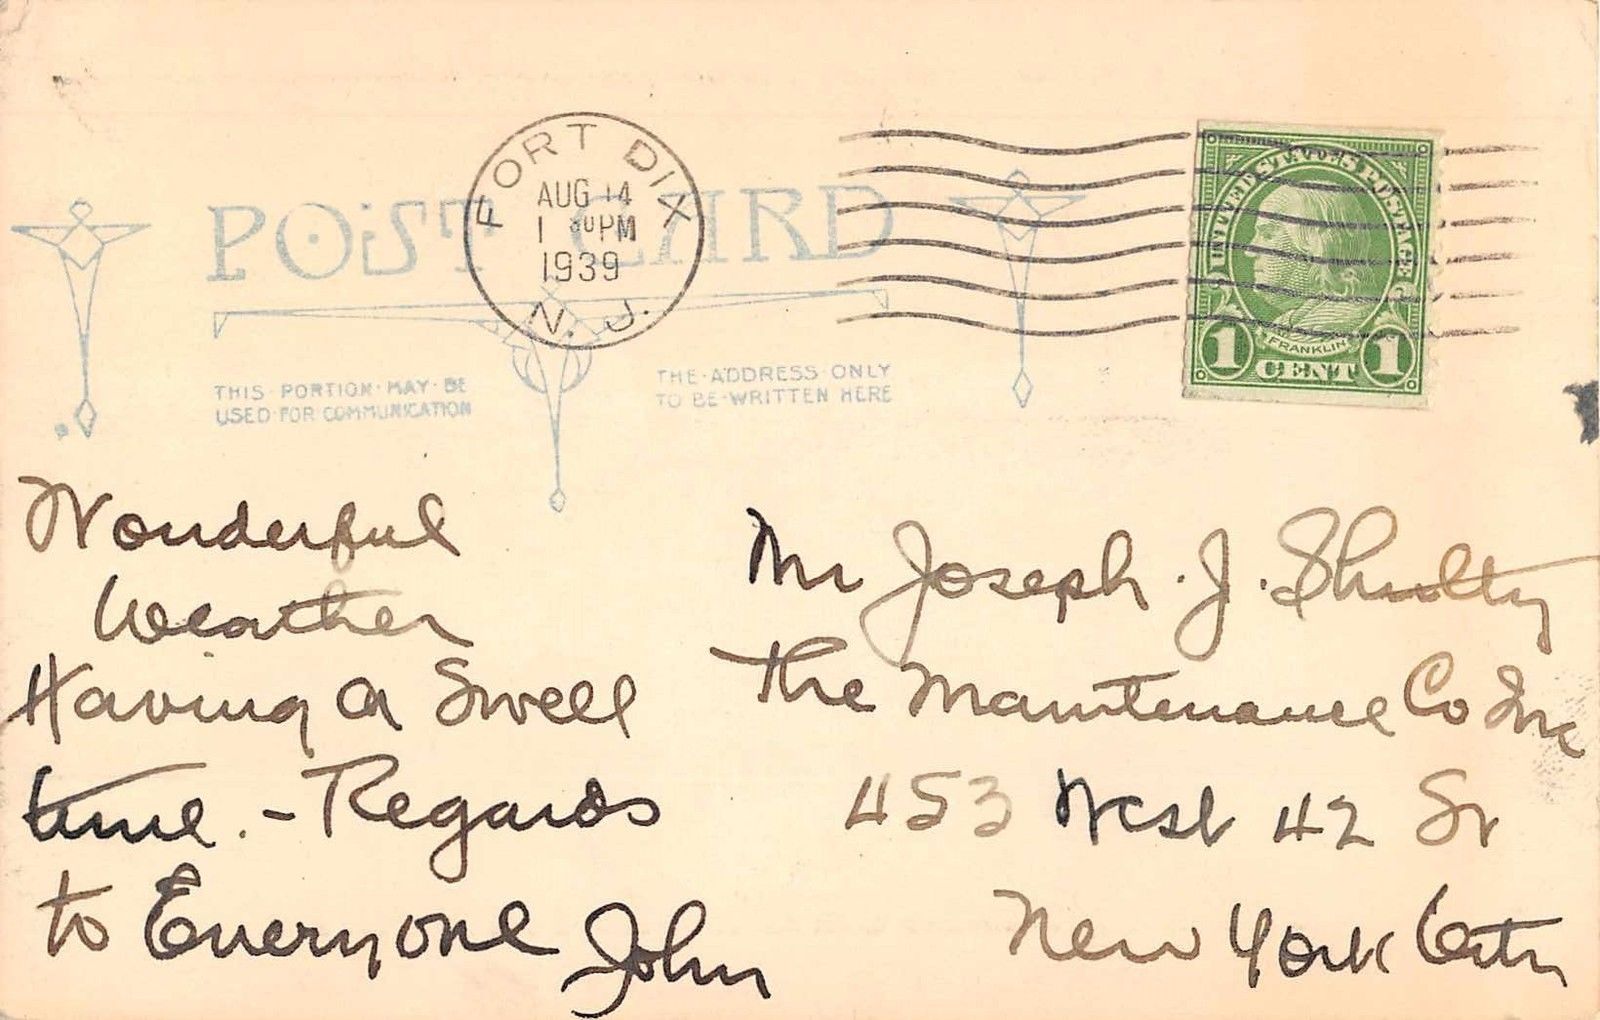 POST CARD
FORT DIX
AUG 14
1 30 PM
1939
N. J.
UNITED STATES POSTAGE
FRANKLIN
1 CENT 1
THIS · PORTION · MAY · BE
USED · FOR COMMUNICATION
THE · ADDRESS ONLY
TO BE · WRITTEN HERE
Wonderful
Weather
Having a Swell
time. - Regards
to Everyone
John
Mr Joseph . J .
The Maintenance Co Inc
453 West 42 St
New York City